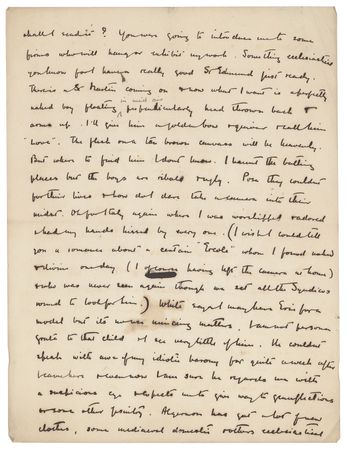 shall I send it? You were going to introduce me to some
firms who will hang or exhibit my work. Something ecclesiastical
you know for I have a really good St Edmund just ready.
There is a St Martin coming on & now what I want is a perfectly
naked boy floating in mid air perpendicularly head thrown back &
arms up. I'll give him a golden bow & quiver & call him
"Love". The flesh on a tan brown canvas will be heavenly.
But where to find him I don't know. I haunt the bathing
places but the boys are ribald & ugly. Pose they couldn't
for their lives & how do I dare take a camera into their
midst. Oh for Italy again where I was worshipped & adored
& had my hands kissed by every one. (I wish I could tell
you a romance about a certain "Ercole" whom I found naked
& divine one day (I having left the camera at home)
& who was never seen again though we set all the Syndics
round to look for him.) White says I may have Eric for a
model but it's no mincing matters. I am not persona
grata to that child & I see very little of him. He couldn't
speak with awe of my idiotic baronny for quite a week after
I came here & even now I am sure he regards me with
a suspicious eye & expects me to give way to genuflections
or some other frivolity. Algernon has got a lot of new
clothes, some mediaeval domestic & others ecclesiastical